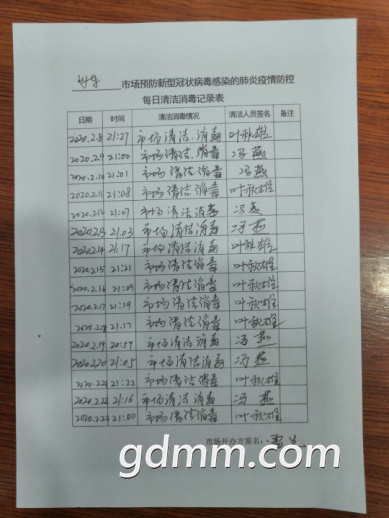 市场预防新型冠状病毒感染的肺炎疫情防控
每日清洁消毒记录表
日期 时间 清洁消毒情况 清洁人员签名 备注
2020.2.8 21:27 市场清洁、消毒 叶秋雄
2020.2.9 21:00 市场清洁、消毒 冯燕
2020.2.10 21:01 市场清洁消毒 冯燕
2020.2.11 21:08 市场清洁消毒 叶秋雄
2020.2.12 21:07 市场清洁消毒 冯燕
2020.2.13 21:03 市场清洁消毒 冯燕
2020.2.14 21:17 市场清洁消毒 叶秋雄
2020.2.15 21:21 市场清洁消毒 叶秋雄
2020.2.16 21:09 市场清洁消毒 叶秋雄
2020.2.17 21:19 市场清洁消毒 叶秋雄
2020.2.18 21:17 市场清洁消毒 叶秋雄
2020.2.19 20:57 市场清洁消毒 冯燕
2020.2.20 21:05 市场清洁消毒 冯燕
21:22 市场清洁消毒 叶秋雄
21:16 市场清洁消毒 冯燕
21:00 市场清洁消毒 叶秋雄
市场开办方签名:
gdmm.com